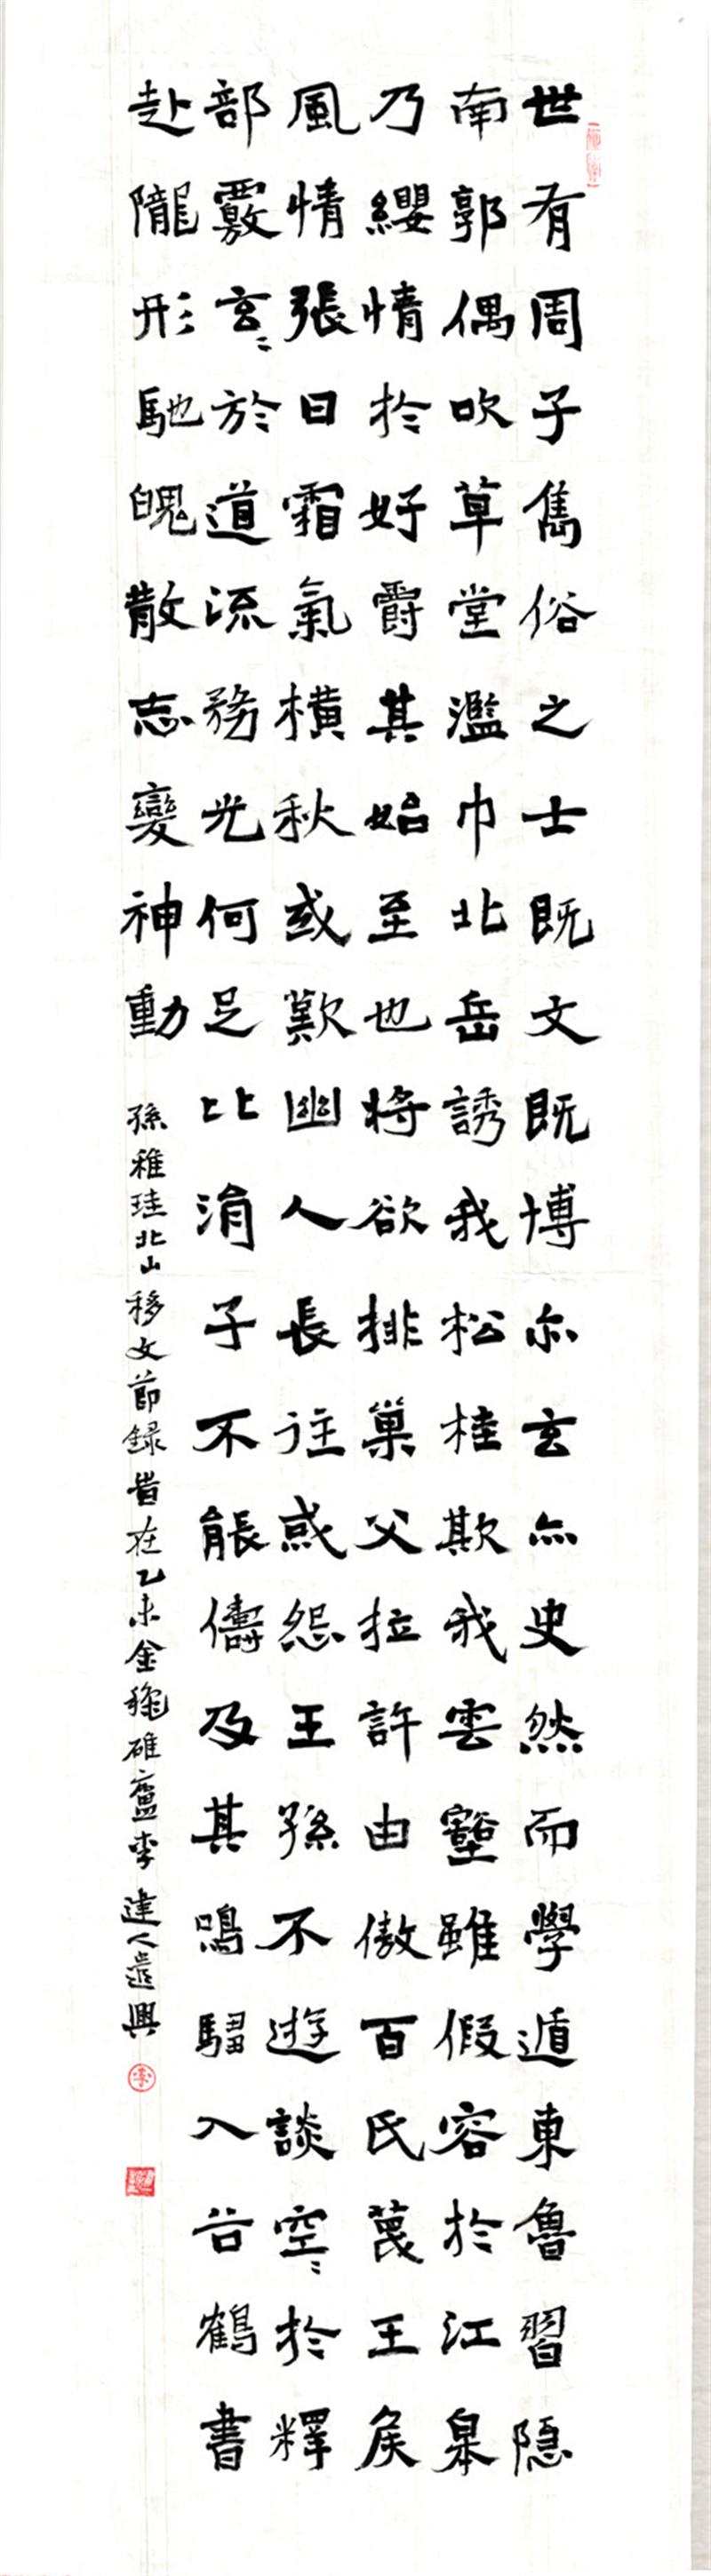 世有周子雋俗之士既文既博亦玄亦史然而學遁東魯習隱
南郭偶吹草堂濫巾北岳誘我松桂欺我雲壑雖假容於江皋
乃纓情於好爵其始至也將欲排巢父拉許由傲百氏蔑王侯
風情張日霜氣橫秋或歎幽人長往或怨王孫不遊談空〻於釋
部覈玄〻於道流務光何足比涓子不能儔及其鳴騶入谷鶴書
赴隴形馳魄散志變神動
孫稚珪北山移文節錄昔在乙未金龝碓廬李建人遣興